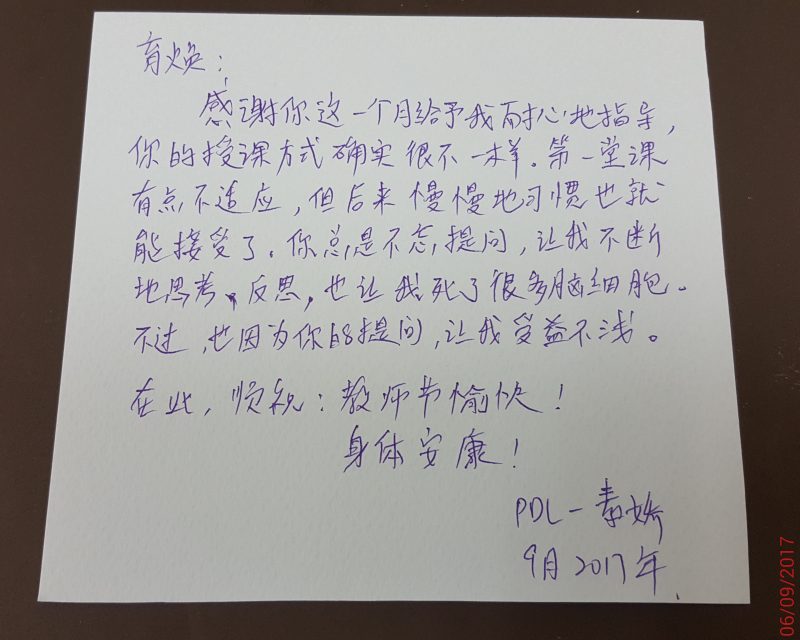 育焕：
感谢你这一个月给予我耐心地指导，
你的授课方式确实很不一样。第一堂课
有点不适应，但后来慢慢地习惯也就
能接受了。你总是不忘提问，让我不断
地思考、反思，也让我死了很多脑细胞。
不过，也因为你的提问，让我受益不浅。
在此，顺祝：教师节愉快！
身体安康！
PDL－素娇
9月2017年
06/09/2017